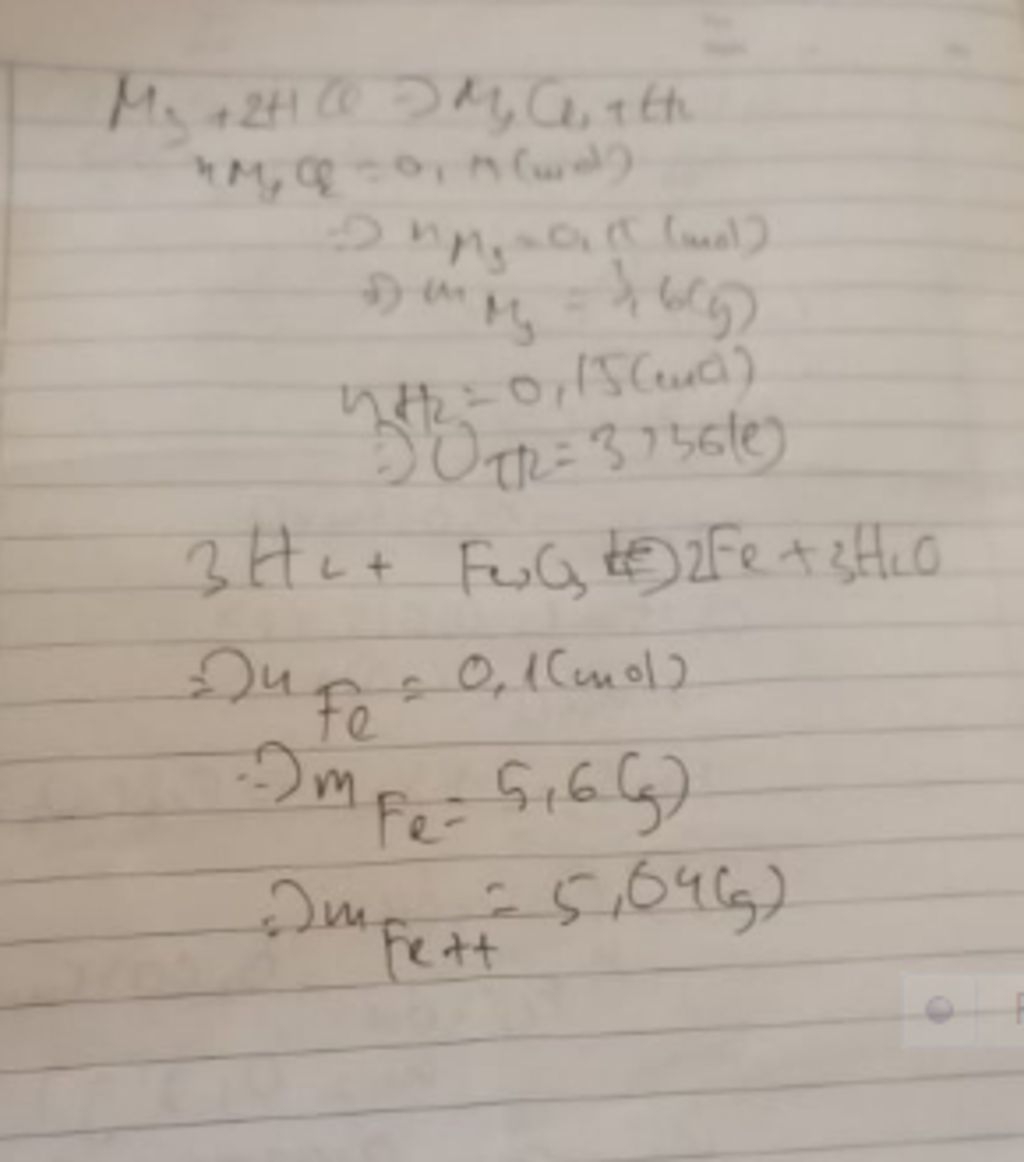 Mg + 2HCl => MgCl₂ + H₂
nMgCl₂ = 0,15 (mol)
=> nMg = 0,15 (mol)
=> mMg = 3,6 (g)
nH₂ = 0,15 (mol)
=> = 3,36 (l)
3H₂ + Fe₂O₃ => 2Fe + 3H₂O
=> nFe = 0,1 (mol)
=> mFe = 5,6 (g)
=> mFe tt = 5,04 (g)